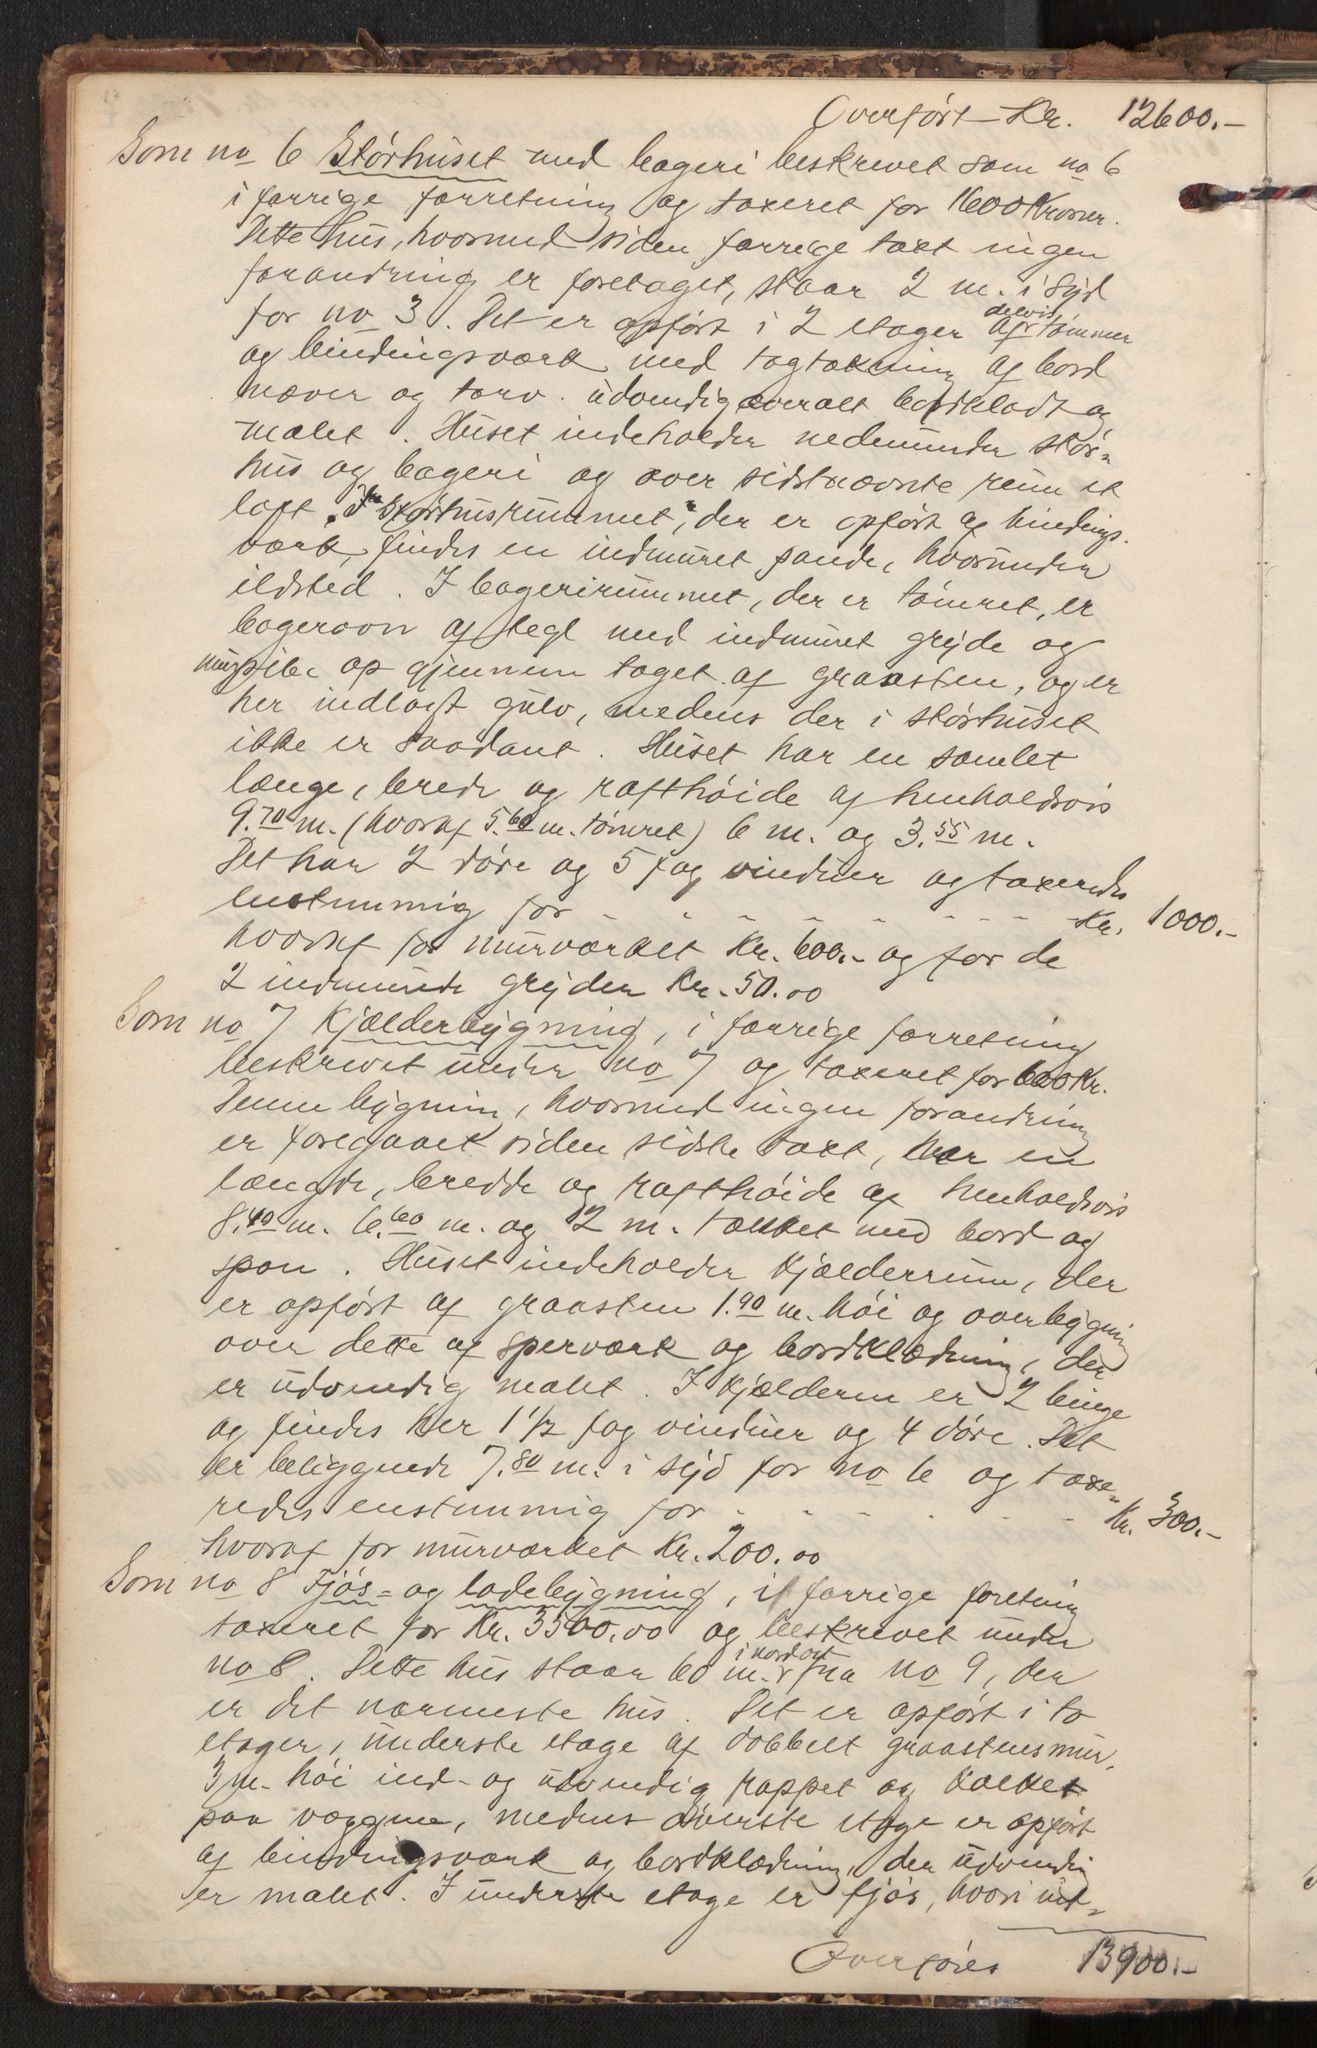 Overført Kr. 12600.-
Som no 6 Størhuset med bageri beskrevet som no 6
i forrige forretning og taxeret for 1600 Kroner.
Dette hus, hvormed siden forrige taxt ingen
forandring er foretaget, staar 2 m. i syd
for no 3. Det er opført i 2 etager delvis af tømmer
og bindingsværk med tagtækning af bord
næver og torv. Udvendig overalt bordklædt og
malet. Huset indeholder nedenunder stør-
hus og bageri og over sidstnævnte rum et
loft. I størhusrummet, der er opført af bindings-
værk, findes en indmuret pande, hvorunder
ildsted. I bagerirummet, der er tømret, er
bagerovn af tegl med indmuret gryde og
murpibe op gjennem taget af graasten, og er
her indlagt gulv, medens der i størhuset
ikke er saadant. Huset har en samlet
længe, brede og rafthøide af henholdsvis
9.70 m. (hvoraf 5.60 m. tømret) 6 m. og 3.55 m.
Det har 2 døre og 5 fag vinduer og taxeredes
enstemmig for - - - - - - - - Kr. 1000.-
hvoraf for murværket Kr. 600.- og for de
2 indmurede gryder Kr. 50.00
Som no 7 Kjælderbygning, i forrige forretning
beskrevet under no 7 og taxeret for 600 Kr.
Denne bygning, hvormed ingen forandring
er foregaaet siden sidste taxt, har en
længde, bredde og rafthøide af henholdsvis
8.40 m. 6.60 m. og 2 m. tækket med bord og
spon. Huset indeholder kjælderrum, der
er opført af graasten 1.90 m. høi og overbygning
over dette af sperværk og bordklædning, der
er udvendig malet. I kjælderen er 2 binge
og findes her 1 1/2 fag vinduer og 4 døre. Det
er beliggende 7.80 m. i syd for no 6 og taxe-
redes enstemmig for - - - - - - Kr. 300.-
hvoraf for murværket Kr. 200.00
Som no 8 Fjøs- og ladebygning, i forrige foretning
taxeret for Kr. 3500.00 og beskrevet under
no 8. Dette hus staar 60 m. i nordost fra no 9, der
er det nærmeste hus. Det er opført i to
etager, underste etage af dobbelt graastensmur,
3 m. høi ind- og udvendig rappet og kalket
paa væggene, medens øverste etage er opført
af bindingsværk og bordklædning, der udvendig
er malet. I underste etage er fjøs, hvori ind-
Overføres 13900.-